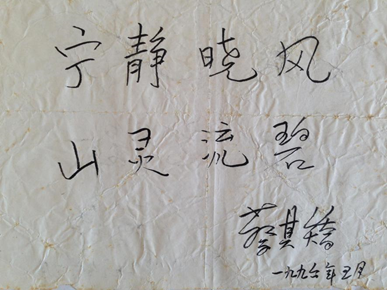 宁静晓风
山灵流碧
蔡其矫
一九九六年五月